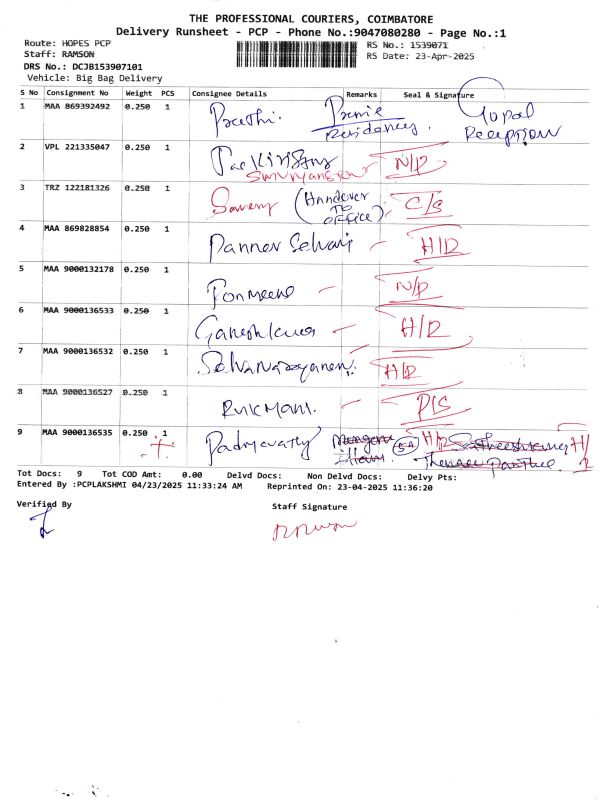 THE PROFESSIONAL COURIERS, COIMBATORE
Delivery Runsheet - PCP - Phone No.:9047080280 - Page No.:1
Route: HOPES PCP
Staff: RAMSON
DRS No.: DCJB153907101
Vehicle: Big Bag Delivery
RS No.: 1539071
RS Date: 23-Apr-2025
S No Consignment No Weight PCS Consignee Details Remarks Seal & Signature
1 MAA 869392492 0.250 1 Preethi. Premie Residency. Gopal Reception
2 VPL 221335047 0.250 1 N/D
3 TRZ 122181326 0.250 1 (Handover TO OFFICE) C/S
4 MAA 869828854 0.250 1 Panner Selvam - H/D
5 MAA 9000132178 0.250 1 Ponmeena - N/D
6 MAA 9000136533 0.250 1 - H/D
7 MAA 9000136532 0.250 1 Selvanarayanan. H/D
8 MAA 9000136527 0.250 1 Rukmani. - D/S
9 MAA 9000136535 0.250 1 Padmavathy H/D
Tot Docs: 9 Tot COD Amt: 0.00 Delvd Docs: Non Delvd Docs: Delvy Pts:
Entered By :PCPLAKSHMI 04/23/2025 11:33:24 AM Reprinted On: 23-04-2025 11:36:20
Verified By Staff Signature